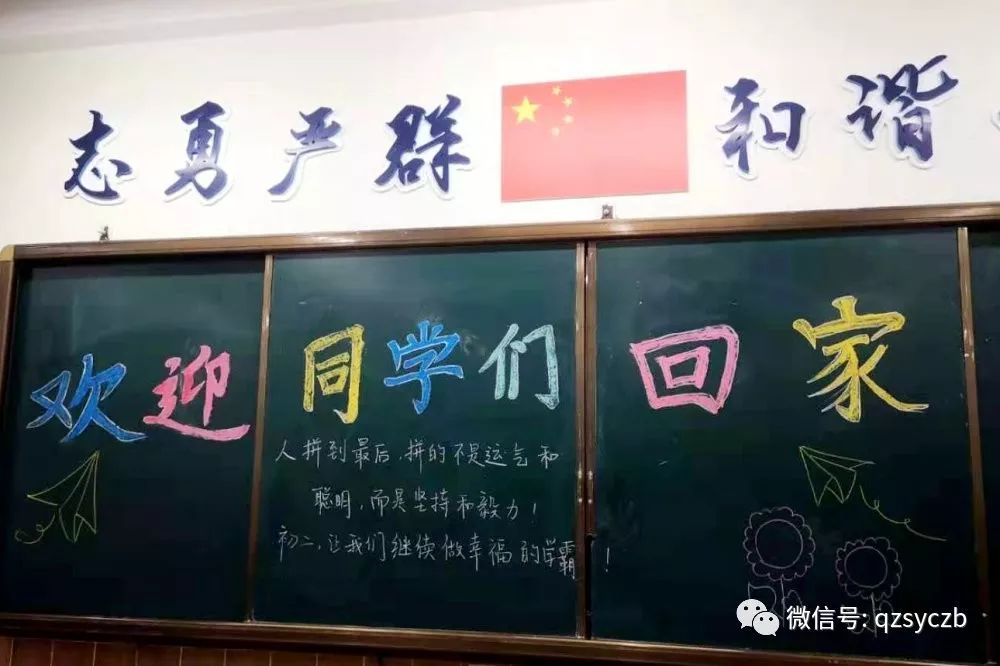 志勇严群 和谐
欢迎同学们回家
人拼到最后，拼的不是运气和
聪明，而是坚持和毅力！
初二，让我们继续做幸福的学霸！
微信号: qzsyczb